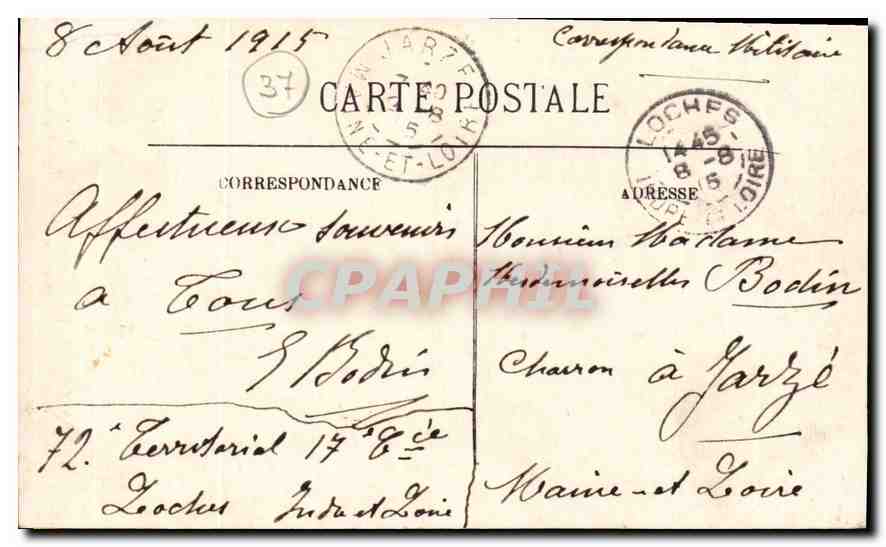 8 Août 1915
Correspondance Militaire
37
JARZE
MAINE-ET-LOIRE
CARTE POSTALE
LOCHES
14 45
8 - 8
15
INDRE ET LOIRE
CORRESPONDANCE
ADRESSE
Affectueux souvenirs
a Tous
E Bodin
72e Territorial 17e Cie
Loches Indre et Loire
Monsieur Madame
Mesdemoiselles Bodin
Charron à Jarzé
Maine-et Loire
CPAPHIL